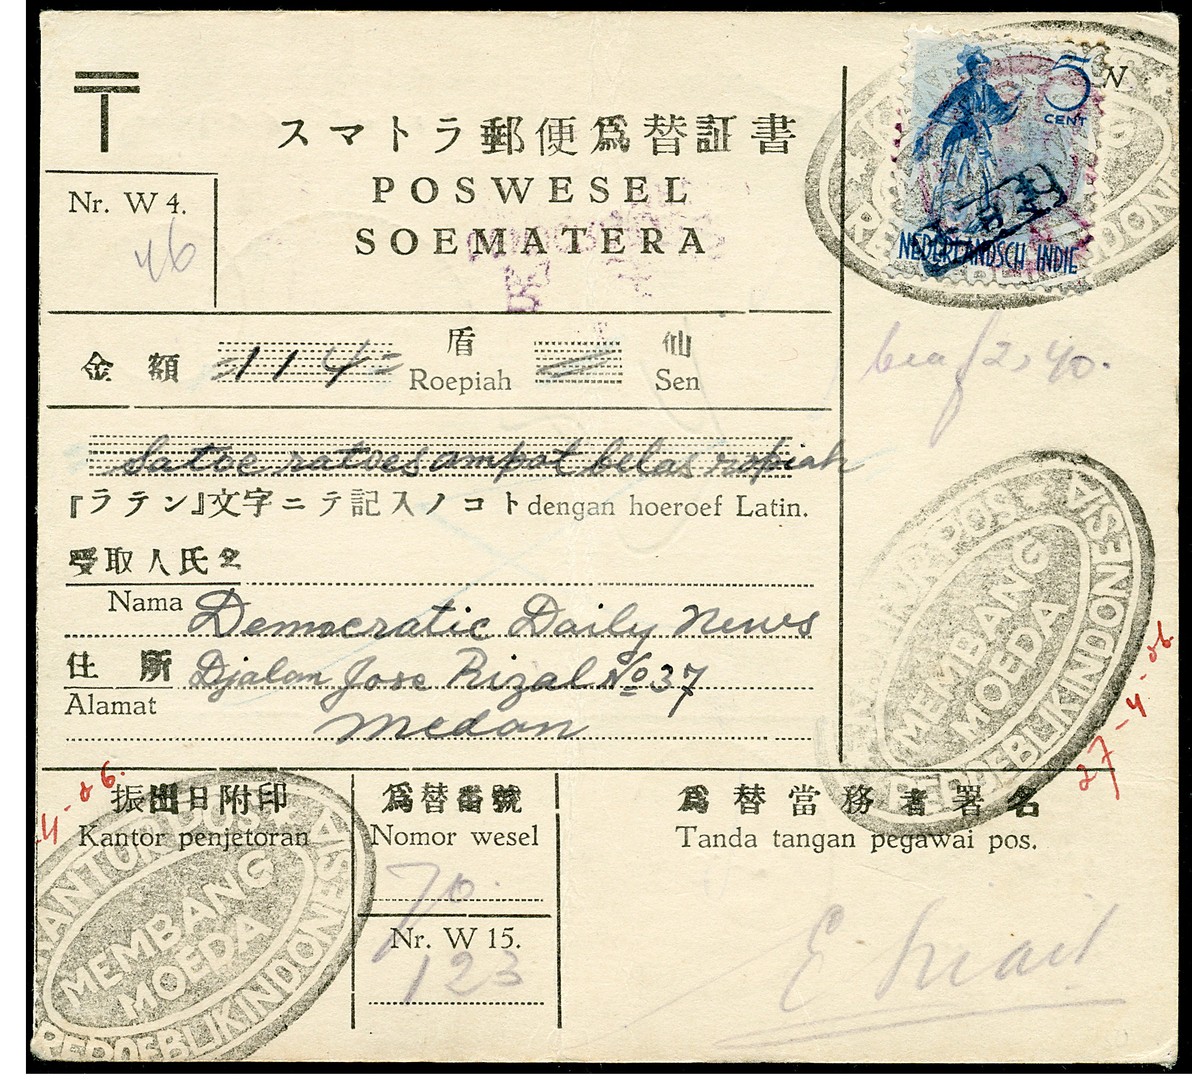 〒
スマトラ郵便為替証書
POSWESEL
SOEMATERA
Nr. W 4.
46
5
CENT
NEDERLANDSCH INDIE
金額 114 盾 Roepiah 仙 Sen
bea f 2,40.
Satoe ratoes ampat belas ropiah
『ラテン』文字ニテ記入ノコト dengan hoeroef Latin.
受取人氏名
Nama Democratic Daily News
住所 Djalan Jose Rizal No 37
Alamat
Medan
KANTOR POS
MEMBANG
MOEDA
REPOEBLIK INDONESIA
27-4-46
振出日附印
Kantor penjetoran
為替番號
Nomor wesel
70.
Nr. W 15.
123
為替當務者署名
Tanda tangan pegawai pos.
KANTOR POS
MEMBANG
MOEDA
REPOEBLIK INDONESIA